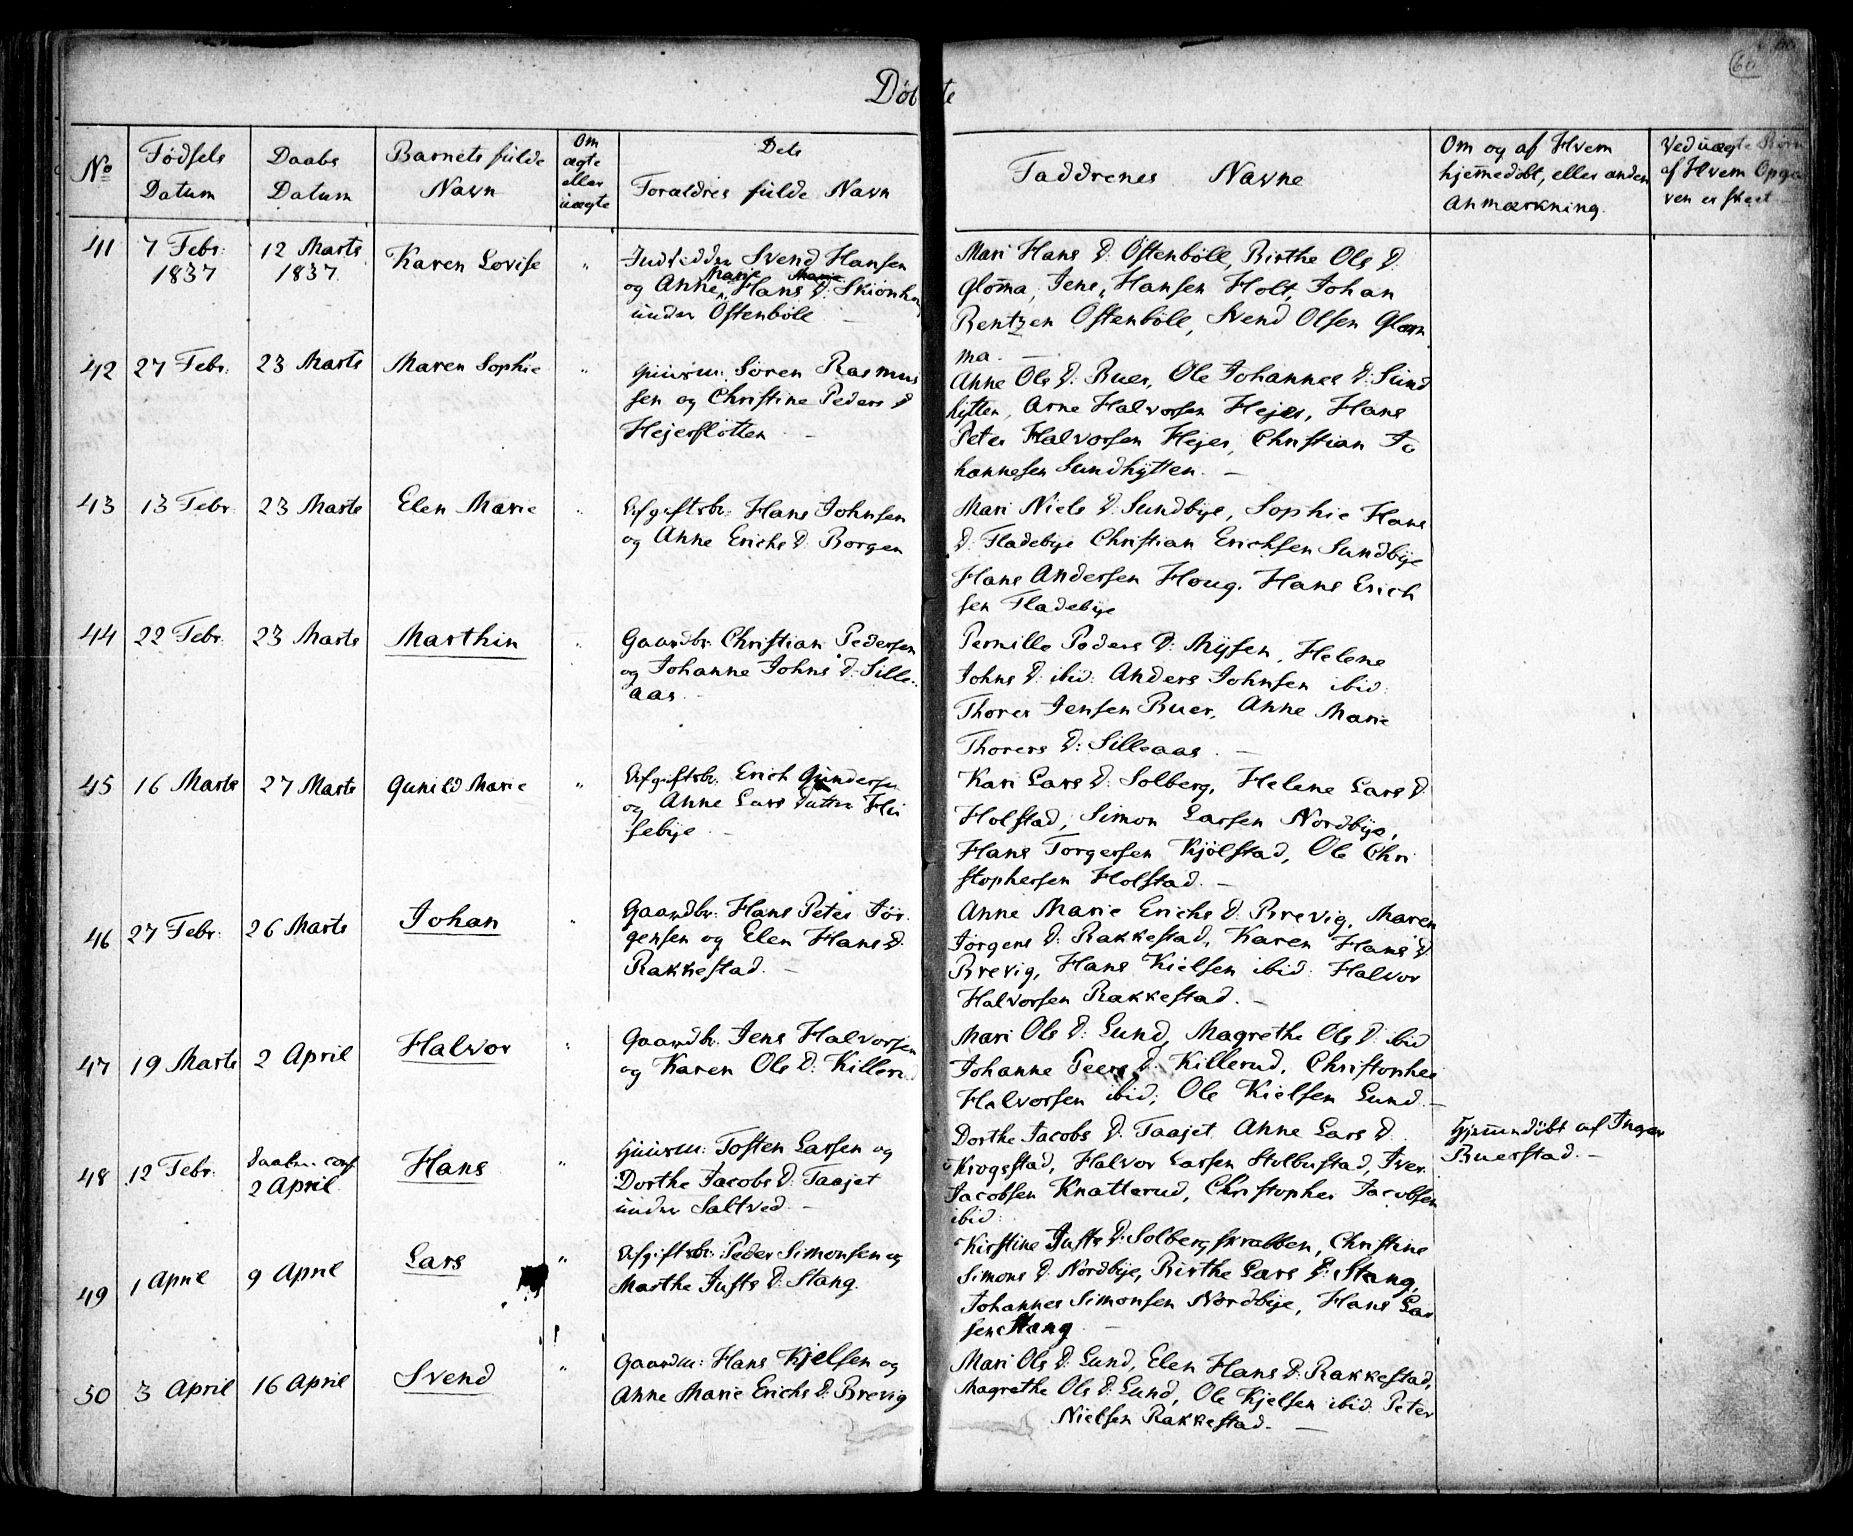 Døbte
60
No
Fødsels
Datum
Daabs
Datum
Barnets fulde
Navn
Om
ægte
eller
uægte
Dets
Forældres fulde Navn
Faddrenes Navne
Om og af Hvem
hjemmedøbt, eller anden
Anmærkning.
Ved uægte Børn
af Hvem Opga
ven er skeet
41
7 Febr.
1837
12 Marts
1837
Karen Lovise
"
Svend Hansen
og Anne Marie Hans D:
under Østenbøll
Mari Hans D: Østenbøll, Birthe Ols D:
Gloma, Jens Hansen Holt, Johan
Bentzen Østenbøll, Svend Olsen Glom
ma.
42
27 Febr.
23 Marts
Maren Sophie
"
Huusm: Søren Rasmus
sen og Christine Peders D
Hejerslotten
Anne Ols D: Buer, Ole Johannes D: Sund
hytten, Arne Halvorsen Hejer, Hans
Peter Halvorsen Hejer, Christian Jo
hannesen Sundhytten.
43
13 Febr.
23 Marts
Elen Marie
"
Afgiftsbr: Hans Johnsen
og Anne Erichs D: Borgen
Mari Niels D: Sundbye, Sophie Hans
D: Fladebye Christian Erichsen Sundbye
Hans Andersen Houg. Hans Erich
sen Fladebye
44
22 Febr.
23 Marts
Marthin
"
Gaardbr: Christian Pedersen
og Johanne Johns D: Sille
aas.
Pernille Peders D: Mysen, Helene
Johns D: ibid: Anders Johnsen ibid:
Thorer Jensen Buer, Anne Marie
Thorers D: Silleaas.
45
16 Marts
27 Marts
Gunild Marie
"
Afgiftsbr. Erich Gundersen
og Anne Lars Datter Hu
sebye
Kari Lars D: Solberg, Helene Lars D
Holstad, Simon Larsen Nordbye,
Hans Torgersen Kjølstad, Ole Chri
stophersen Holstad.
46
27 Febr.
26 Marts
Johan
"
Gaardbr. Hans Peter Jør
gensen og Elen Hans D.
Rakkestad.
Anne Marie Erichs D: Brevig, Maren
Jørgens D: Rakkestad, Karen Hans D
Brevig, Hans Kielsen ibid: Halvor
Halvorsen Rakkestad.
47
19 Marts
2 April
Halvor
"
Gaardbr. Jens Halvorsen
og Karen Ols D: Killerud
Mari Ols D: Lund, Magrethe Ols D: ibid
Johanne Peers D: Killerud, Christopher
Halvorsen ibid; Ole Kielsen Lund.
48
12 Febr.
Daaben conf
2 April
Hans
"
Huusm: Tosten Larsen og
Dorthe Jacobs D: Taajet
under Saltved
Dorthe Jacobs D: Taajet Anne Lars D
Krogsstad, Halvor Larsen Stolbustad, Iver
Jacobsen Knatterud, Christopher Jacobsen
ibid:
Hjemmedøbt af Inger
Buerstad.
49
1 April
9 April
Lars
"
Afgiftsbr: Peder Simonsen og
Marthe Justs D: Stang.
Kirstine Justs D: Solbergskrabben, Christine
Simons D: Nordbye, Birthe Lars D: Stang,
Johannes Simonsen Nordbye, Hans Lar
sen Stang
50
3 April
16 April
Svend
"
Gaardm: Hans Kjelsen og
Anne Marie Erichs D: Brevig
Mari Ols D: Lund, Elen Hans D: Rakkestad,
Magrethe Ols D: Lund, Ole Kjelsen ibid: Peter
Nielsen Rakkestad.